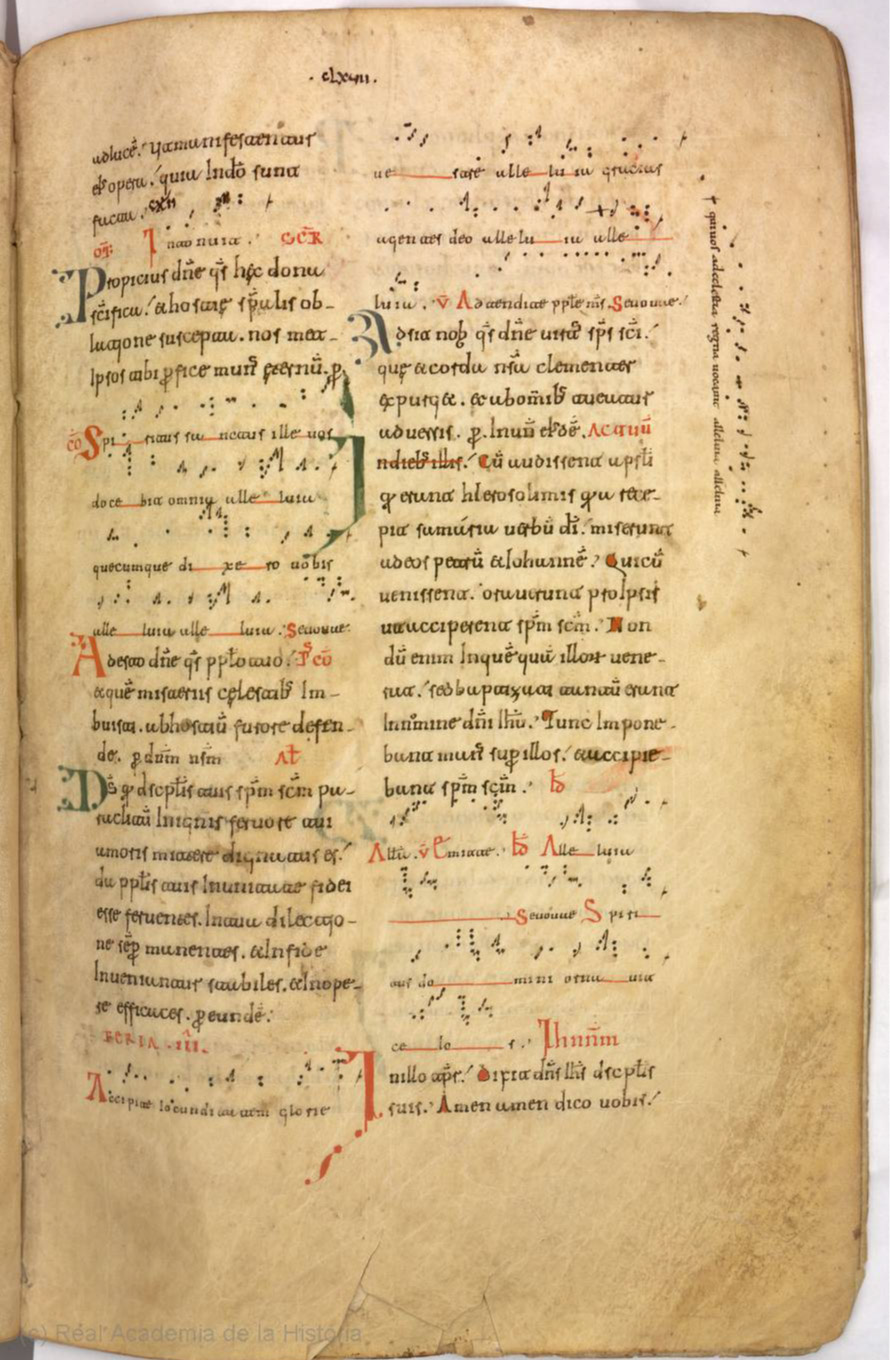 · clxvii ·
adlucē. ut manifestentur
ei opera. quia In dō sunt
facta.
of: Intonuit. SCR
Propicius dñe qs hęc dona
scīfica. & hostię spūalis ob-
lacione suscepta. nos met
Ipsos tibi pfice mun̄ ęternū. p
cō Spiritus sanctus ille vos
docebit omnia alleluia
quecumque dixero vobis
alleluia alleluia. Seuouae
Adesto dñe qs pplo tuo.
& quē misteriis cęlestib Im-
buisti. ab hostiū furore defen-
de. p dñm nsm Al
Ds q discplis tuis spm scm pa-
raclitū In ignis feruore tui
amoris mittere dignatus es.
da pplis tuis In unitate fidei
esse feruentes. In tua dilectio-
ne sep manentes. & In fide
Inueniantur stabiles. & In ope-
re efficaces. p eiundē.
FERIA .III.
Accipite iocunditatem glorie
ue strę alleluia gracias
agentes deo alleluia alle
luia. V Adtendite pple ms. Seuouae.
Adsit nob qs dñe uirt sps sci.
quę & corda nsa clementer
expurget. & ab omīb tueatur
aduersis. p. In unī eidē. Actuū
In dieb illis. Cū audissent apsli
q erant hIerosolimis qa rece-
pit samaria uerbū dī. miserunt
ad eos petrū & Iohannē. Qui cū
uenissent. orauerunt pro Ipsis
ut acciperent spm scm. Non
dū enim In quēquā illorum uene-
rat. sed baptizati tantū erant
In nomine dñi ihu. Tunc Impone-
bant man sup illos. & accipie-
bant spm scm.
Alla. V Emitte. Alleluia
Seuouae Spiri
tus domini ornauit
celos. Ihnnm
In illo tpr. Dixit dns ihs discplis
suis. Amen amen dico uobis.
qui nos ad celestia regna uocauit alleluia alleluia
(c) Real Academia de la Historia